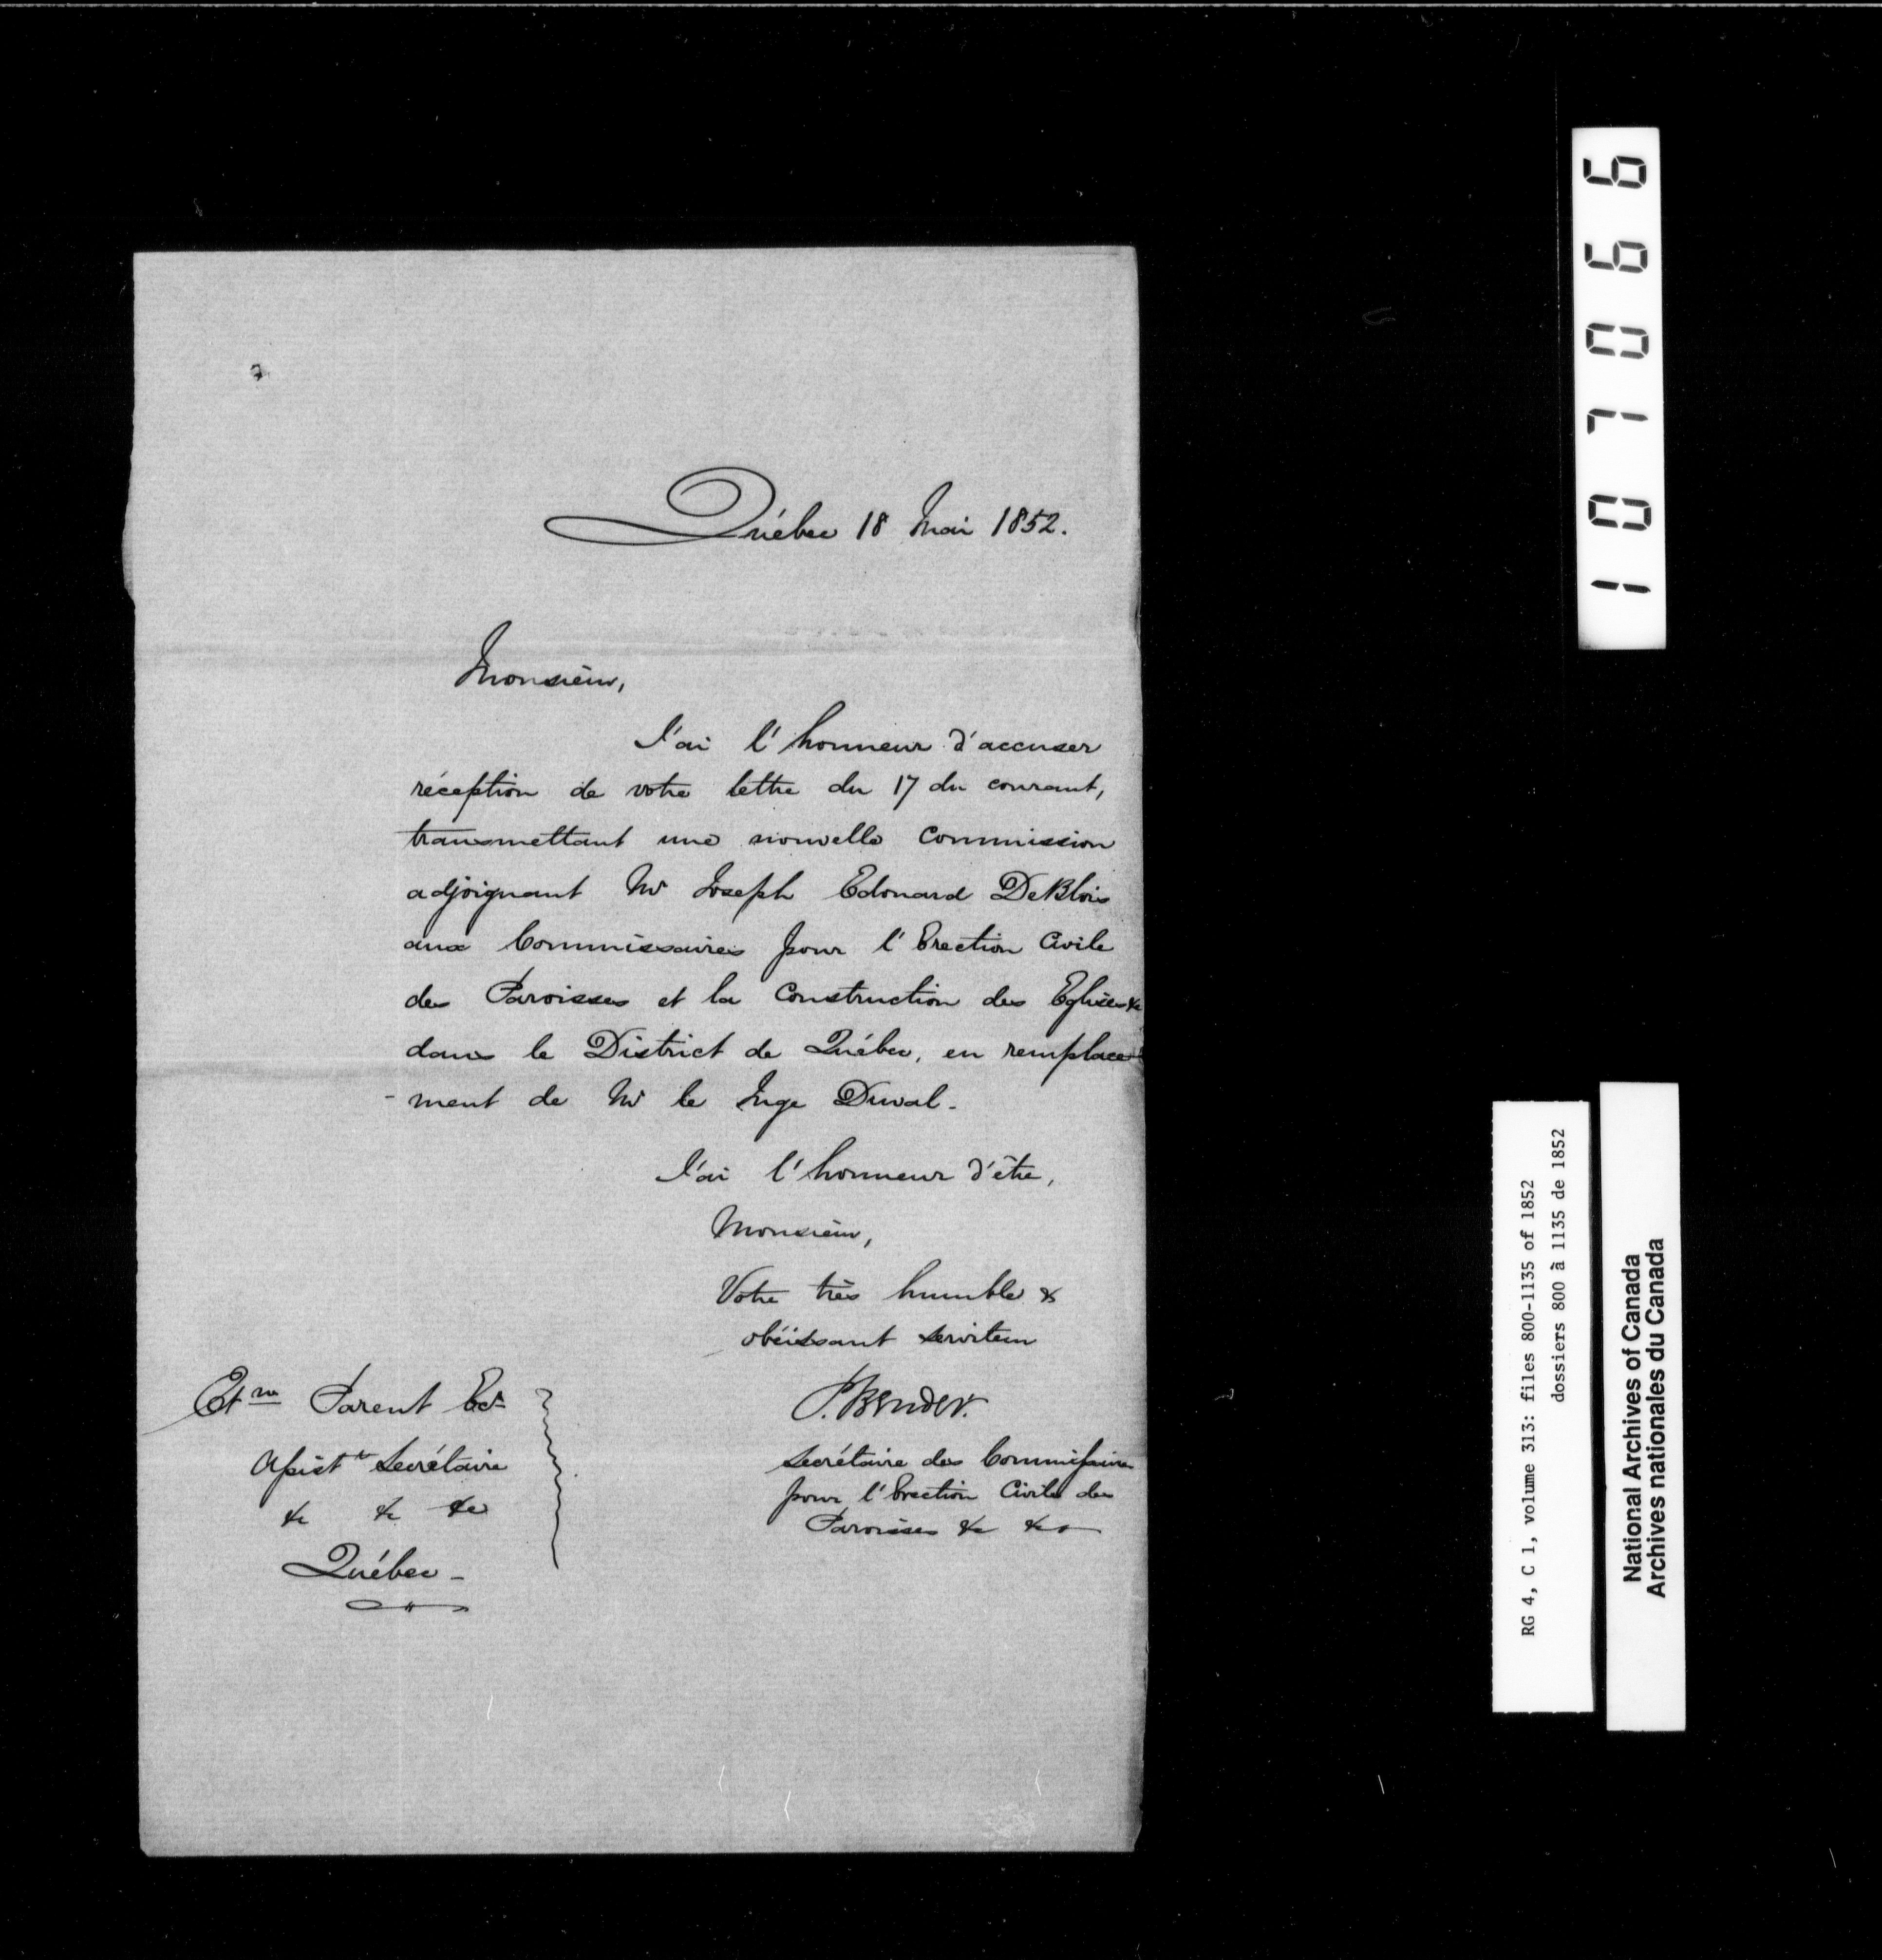 Québec 18 Mai 1852.
Monsieur,
J'ai l'honneur d'accuser
réception de votre lettre du 17 du courant,
transmettant une nouvelle Commission
adjoignant Mr Joseph Edouard DeBlois
aux Commissaires pour l'Erection Civile
des Paroisses et la Construction des Eglises &c
dans le District de Québec, en remplace
-ment de Mr le Juge Duval.
J'ai l'honneur d'être,
Monsieur,
Votre très humble &
obéissant serviteur
P. Bender.
Secrétaire des Commissaires
pour l'Erection Civile des
Paroisses &c &c
Etne Parent Ecr
Assistt Secrétaire
&c &c &c
Québec -
107066
RG 4, C 1, volume 313: files 800-1135 of 1852
dossiers 800 à 1135 de 1852
National Archives of Canada
Archives nationales du Canada